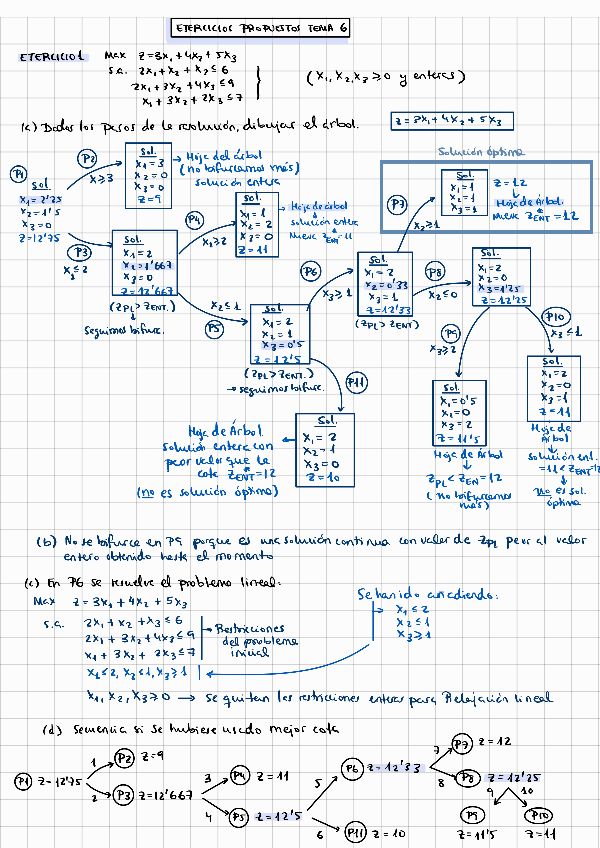 EJERCICIOS PROPUESTOS TEMA 6
EJERCICIO 1 Max z=3x₁+4x₂+5x₃
s.a. 2x₁+x₂+x₃≤6
2x₁+3x₂+4x₃≤9
x₁+3x₂+2x₃≤7
(x₁,x₂,x₃≥0 y enteras)
(a) Dados los pasos de la resolución, dibujar el árbol.
z=3x₁+4x₂+5x₃
P1
Sol.
x₁=2'25
x₂=1'5
x₃=0
z=12'75
P2
x≥3
Sol.
x₁=3
x₂=0
x₃=0
z=9
→ Hoja del árbol
(no bifurcamos más)
solución entera
P3
x₁≤2
Sol.
x₁=2
x₂=1'667
x₃=0
z=12'667
(z_PL>z_ENT.)
seguimos bifurc.
P4
x₂≥2
Sol.
x₁=1
x₂=2
x₃=0
z=11
→ Hoja de árbol
solución entera
nueva z*_ENT=11
P5
x₂≤1
Sol.
x₁=2
x₂=1
x₃=0'5
z=12'5
(z_PL>z_ENT.)
→ seguimos bifurc.
P6
x₃≥1
Sol.
x₁=2
x₂=0'33
x₃=1
z=12'33
(z_PL>z_ENT)
Solución óptima
P7
x₂≥1
Sol.
x₁=1
x₂=1
x₃=1
z=12
Hoja de Árbol.
nueva z*_ENT=12
P8
x₂≤0
Sol.
x₁=2
x₂=0
x₃=1'25
z=12'25
P9
x₃≥2
Sol.
x₁=0'5
x₂=0
x₃=2
z=11'5
Hoja de Árbol
z_PL<z_EN=12
(no bifurcamos
más)
P10
x₃≤1
Sol.
x₁=2
x₂=0
x₃=1
z=11
Hoja de
Árbol
solución ent.
=11<z_ENT=12
→ no es sol.
óptima
P11
Sol.
x₁=2
x₂=1
x₃=0
z=10
Hoja de Árbol.
solución entera con
peor valor que la
cota z*_ENT=12
(no es solución óptima)
(b) No se bifurca en P9 porque es una solución continua con valor de z_PL peor al valor
entero obtenido hasta el momento
(c) En P6 se resuelve el problema lineal:
Max z=3x₁+4x₂+5x₃
s.a. 2x₁+x₂+x₃≤6
2x₁+3x₂+4x₃≤9
x₁+3x₂+2x₃≤7
→ Restricciones
del problema
inicial
x₁≤2, x₂≤1, x₃≥1
Se han ido añadiendo:
→ x₁≤2
x₂≤1
x₃≥1
x₁,x₂,x₃≥0 → se quitan las restricciones enteras para Relajación lineal
(d) Secuencia si se hubiese usado mejor cota
P1 z=12'75
1 P2 z=9
2 P3 z=12'667
3 P4 z=11
4 P5 z=12'5
5 P6 z=12'33
6 P11 z=10
7 P7 z=12
8 P8 z=12'25
9 10
P9 P10
z=11'5 z=11